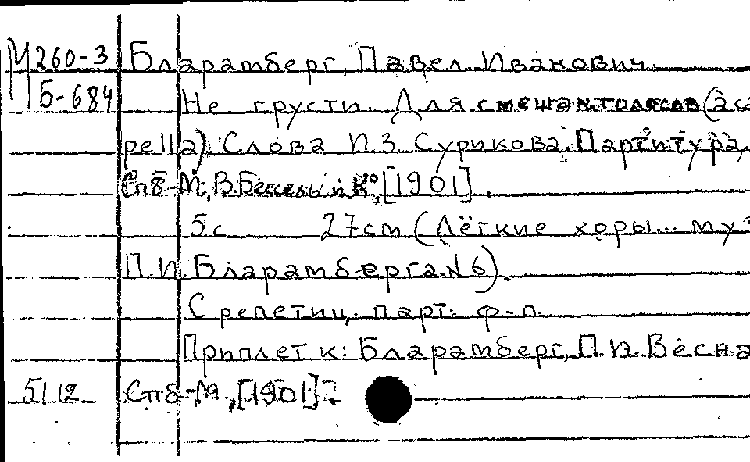 М 260-3 Бларамберг, Павел Иванович.
Б-684 Не грусти. Для смешан. голосов (aca
pella). Слова И.З. Сурикова. Партитура.
Спб-М, В. Бессель и Ко, [1901].
5 с 27см (Лёгкие хоры... муз
П.И. Бларамберга. №6).
С репетиц. парт. ф-п.
Приплет к: Бларамберг, П.И. Весна
5112 Спб-М, [1901]